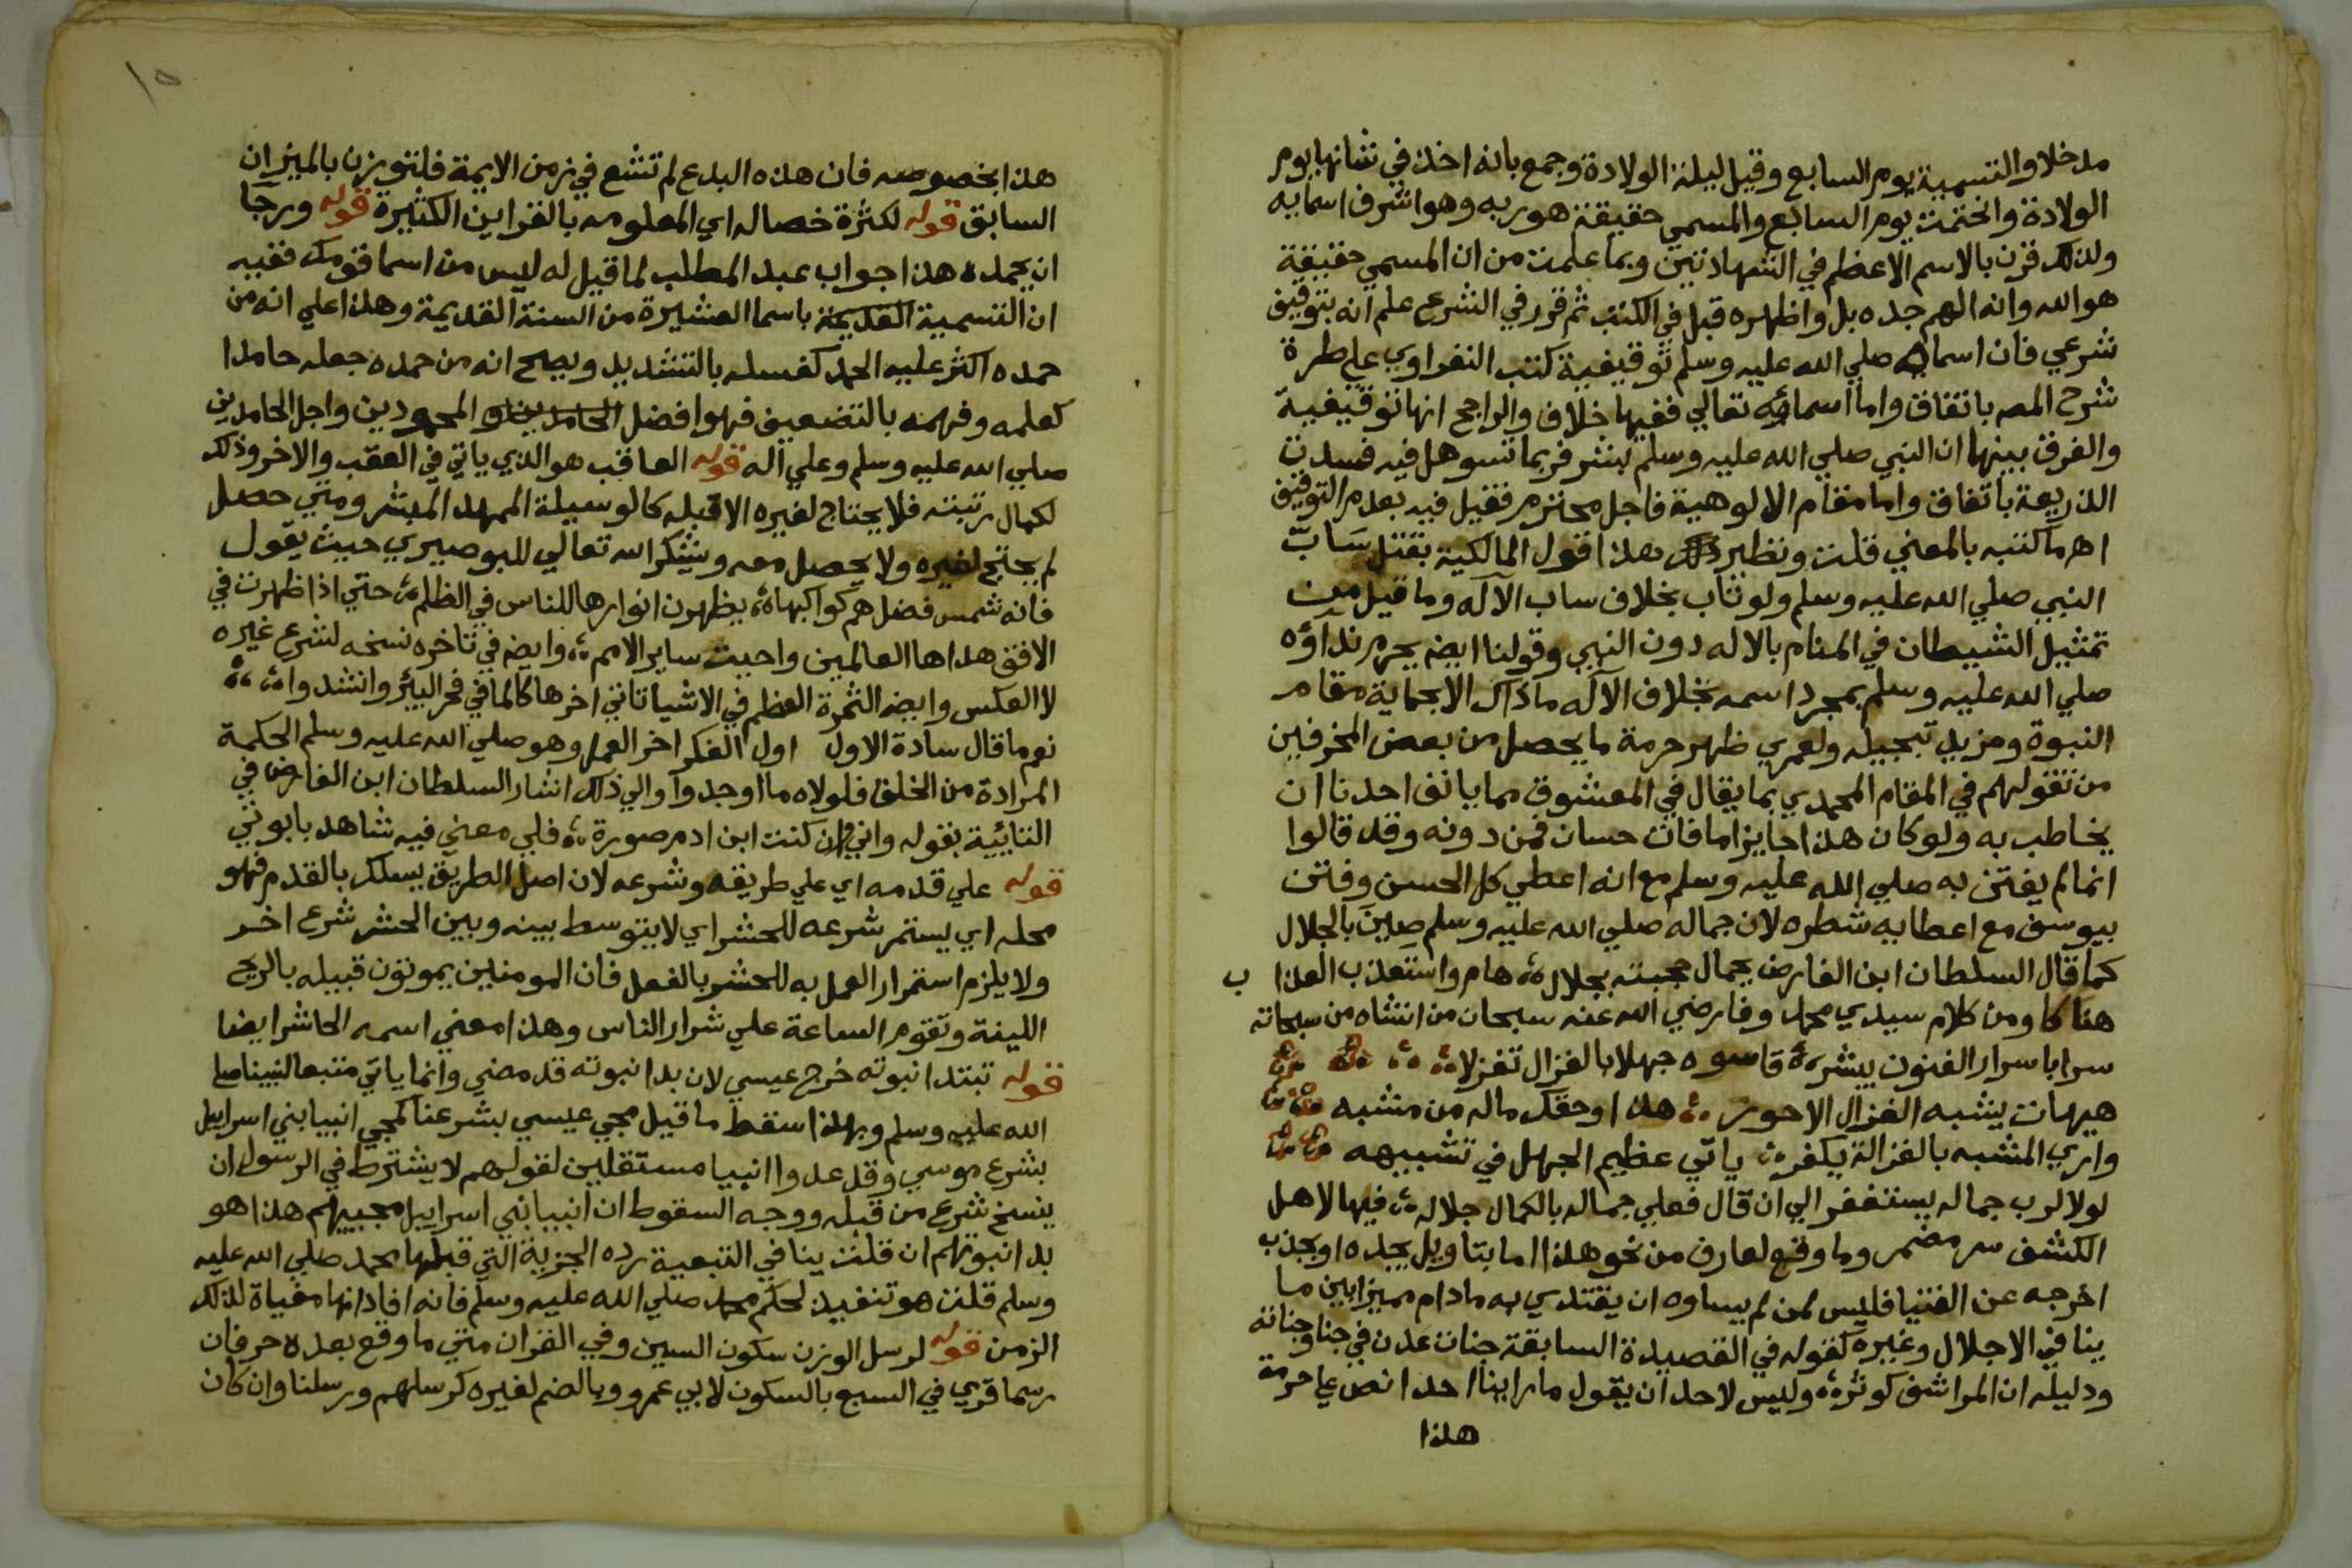 مدخلا والتسمية يوم السابع وقيل ليلة الولادة وجمع بانه اخذ في شانها يوم
الولادة وانختمت يوم السابع والمسمي حقيقة هو ربه وهو اشرف اسمايه
ولذلك قرن بالاسم الاعظم في الشهادتين وبما علمت من ان المسمي حقيقة
هو الله وانه الهم جده بل واظهره قبل في الكتب ثم قرر في الشرع علم انه بتوقيف
شرعي فان اسماه صلي الله عليه وسلم توقيفية كتب النفراوي علي طرة
شرح المصه باتفاق واما اسمائه تعالي ففيها خلاف والراجح انها توقيفية
والفرق بينهما ان النبي صلي الله عليه وسلم بشر فربما تسوهل فيه فسدت
الذريعة باتفاق واما مقام الالوهية فاجل محترم فقيل فيه بعدم التوقيف
اهـ ما كتبه بالمعني قلت ونظير هذا قول المالكية بقتل سَابّ
النبي صلي الله عليه وسلم ولو تاب بخلاف ساب الآله وما قيل من
تمثيل الشيطان في المنام بالاله دون النبي وقولنا ايضه يحرم نداؤه
صلي الله عليه وسلم بمجرد اسمه بخلاف الآله ماذاك الالحماية مقام
النبوة ومزيد تبجيله ولعمري ظهر حرمة ما يحصل من بعض المخرفين
من تقولهم في المقام المحمدي بما يقال في المعشوق مما يانف احدنا ان
يخاطب به ولو كان هذا جايزا ما فات حسان فمن دونه وقد قالوا
انما لم يفتتن به صلي الله عليه وسلم مع انه اعطي كل الحسن وفتن
بيوسف مع اعطايه شطره لان جماله صلي الله عليه وسلم صِينَ بالجلال
كما قال السلطان ابن الفارض بجمال حجبته بجلال هام واستعذب العذاب
هناكا ومن كلام سيدي محمد وفا رضي الله عنه سبحان من انشاه من سبحاته
سرا باسرار الفنون يبشره قاسوه جهلا بالغزال تغزلا
هيهات يشبه الغزال الاحور هذا وحقك ماله من مشبه
واري المشبه بالغزالة يكفر ياتي عظيم الجهل في تشبيهه
لولا لرب جماله يستغفر الي ان قال فعلي جماله بالكمال جلاله فيها لاهل
الكشف سر مضمر وما وقع لعارف من نحو هذا اما بتاويل يجده او بجذب
اخرجه عن الفتيا فليس لمن لم يساوه ان يقتدي به ما دام مميزا بين ما
ينافي الاجلال وغيره كقوله في القصيدة السابقة جنات عدن في جنا وجناته
ودليله ان المراشف كوثره وليس لاحد ان يقول ما راينا احدا نص علي حرمة
هذا
١٥
هذا بخصوصه فان هذه البدع لم تشع في زمن الايمة فلتوزن بالميزان
السابق قوله لكثرة خصاله اي المعلومه بالقراين الكثيرة قوله ورجا
ان يحمده هذا جواب عبد المطلب لما قيل له ليس من اسما قومك ففيه
ان التسمية القديمة باسما العشيرة من السنة القديمة وهذا علي انه من
حمده اكثر عليه الحمد كغسله بالتشديد ويصح انه من حمده جعله حامدا
كعلمه وفهمه بالتضعيف فهو افضل المحمودين واجل الحامدين
صلي الله عليه وسلم وعلي اله قوله العاقب هو الذي ياتي في العقب والاخر وذلك
لكمال رتبته فلا يحتاج لغيره الا قبله كالوسيلة الممهد المبشر ومتي حصل
لم يحتج لغيره ولا يحصل معه وشكر الله تعالي للبوصيري حيث يقول
فانه شمس فضل هم كواكبها يظهرن انوارها للناس في الظلم حتي اذا ظهرت في
الافق هداها العالمين واحيت ساير الامم وايضه في تاخره نسخه لشرع غيره
لا العكس وايضه الثمرة العظم في الاشيا تاتي اخرها كالما في فحر البئر وانشدوا
نعم ما قال سادة الاول اول الفكر اخر العمل وهو صلي الله عليه وسلم الحكمة
المرادة من الخلق فلولاه ما اوجدوا والي ذلك اشار السلطان ابن الفارض في
التائية بقوله واني وان كنت ابن ادم صورة فلي معني فيه شاهد بابوتي
قوله علي قدمه اي علي طريقه وشرعه لان اصل الطريق يسلك بالقدم فهو
محله اي يستمر شرعه للحشر اي لا يتوسط بينه وبين الحشر شرع اخر
ولا يلزم استمرار العمل به للحشر بالفعل فان المومنين يموتون قبيله بالريح
اللينة وتقوم الساعة علي شرار الناس وهذا معني اسمه الحاشر ايضا
قوله تبتدا نبوته خرج عيسي لان بدا نبوته قد مضي وانما ياتي متبعا لنبينا صلي
الله عليه وسلم وبهذا سقط ما قيل مجي عيسي بشرعنا كمجي انبيا بني اسراييل
بشرع موسي وقد عدوا انبيا مستقلين لقولهم لا يشترط في الرسول ان
ينسخ شرع من قبله ووجه السقوط ان انبيا بني اسراييل مجييهم هذا هو
بدا نبوتهم ان قلت ينافي التبعية رده الجزية التي قبلها محمد صلي الله عليه
وسلم قلت هو تنفيذ لحكم محمد صلي الله عليه وسلم فانه افاد انها مغياة لذلك
الزمن قوله لرسل الوزن سكون السين وفي القران متي ما وقع بعده حرفان
رسما قري في السبع بالسكون لابي عمرو وبالضم لغيره كرسلهم ورسلنا وان كان